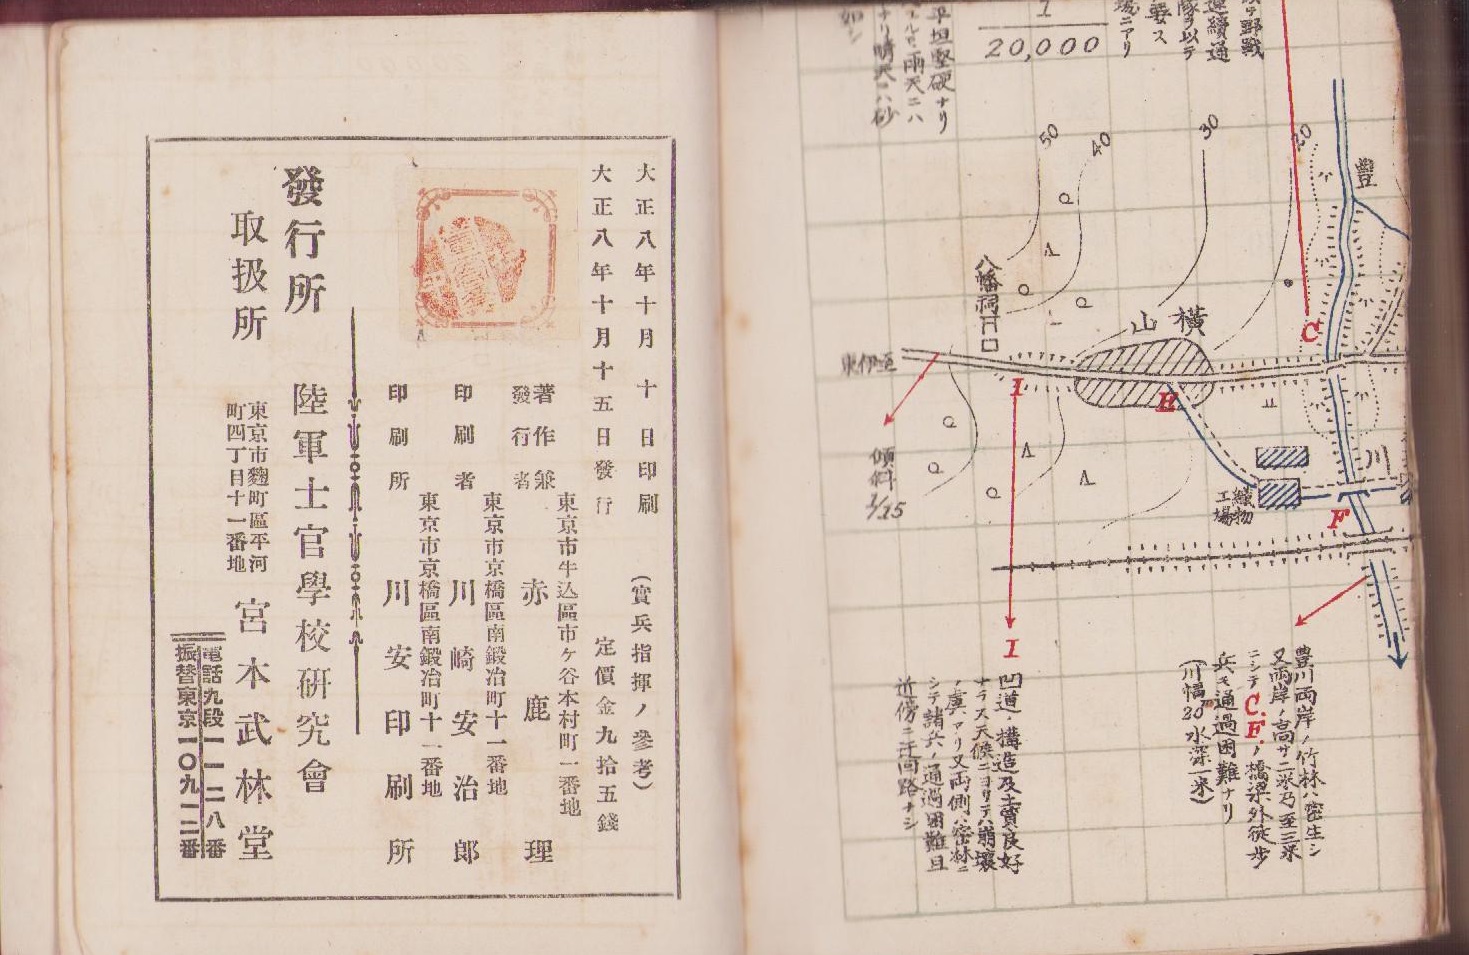 大正八年十月十日印刷
(實兵指揮ノ參考)
大正八年十月十五日發行
定價金九拾五錢
東京市牛込區市ケ谷本村町一番地
著作兼
發行者
赤鹿理
東京市京橋區南鍛冶町十一番地
印刷者
川崎安治郎
東京市京橋區南鍛冶町十一番地
印刷所
川安印刷所
發行所
陸軍士官學校研究會
取扱所
東京市麴町區平河
町四丁目十一番地
宮本武林堂
電話九段一一二八番
振替東京一〇九一二番
1
20,000
テ野戰
連續通
隊ヲ以テ
要ス
場ニアリ
平坦堅硬ナリ
雨天ニハ
ナリ晴天ニハ砂
如シ
50
40
30
20
豊
川
C
八幡祠
横山
至伊東
I
H
F
傾斜
1/25
織物
工場
I
凹道ノ構造及土質良好
ナラス天候ニヨリテハ崩壞
ノ虞アリ又両側ハ密林ニ
シテ諸兵ノ通過困難且
近傍ニ迂回路ナシ
豊川両岸ノ竹林ハ密生シ
又両岸ノ高サ二米乃至三米
ニシテC.F.ノ橋梁外徒歩
兵モ通過困難ナリ
(川幅30水深一米)